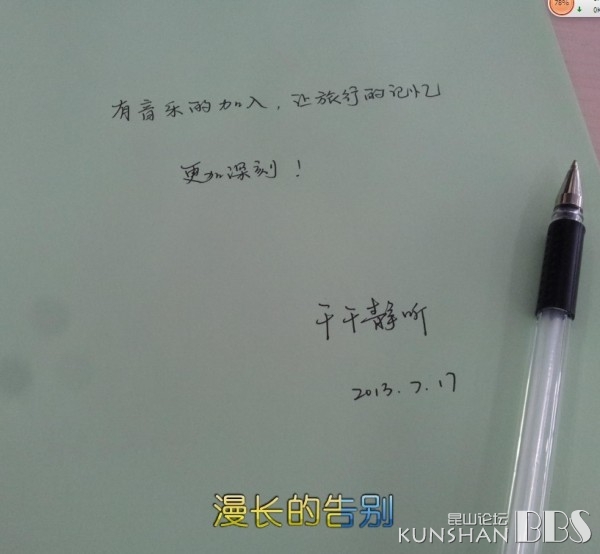 78%
有音乐的加入，让旅行的记忆
更加深刻！
千千静听
2013.7.17
漫长的告别
昆山论坛
KUNSHAN BBS